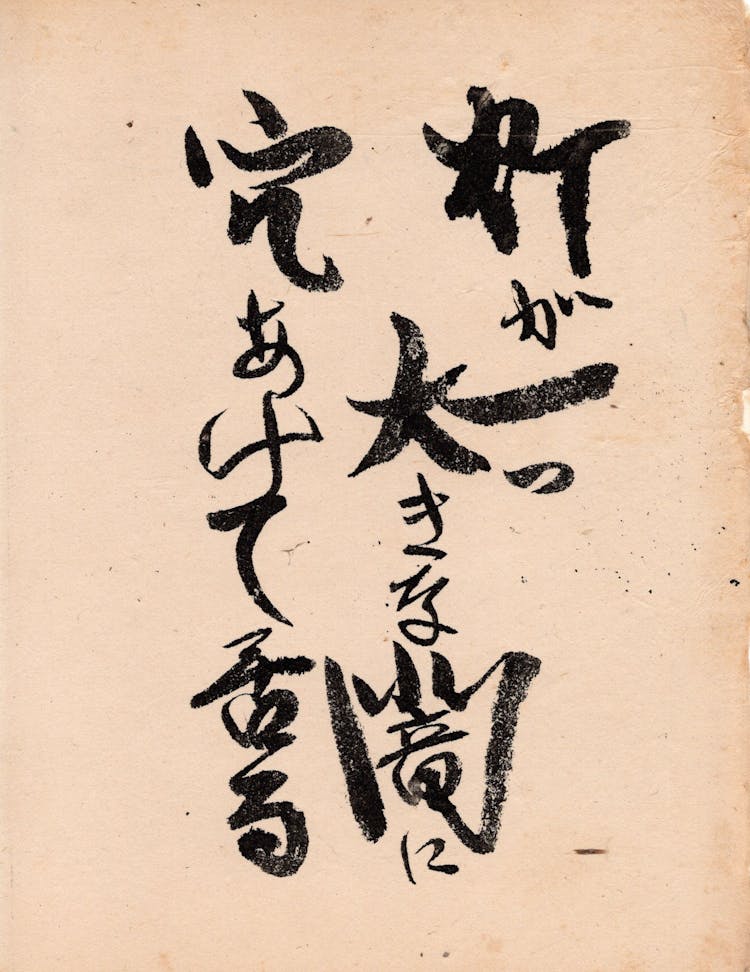 灯が一つ
大きな闇に
穴あけて居る